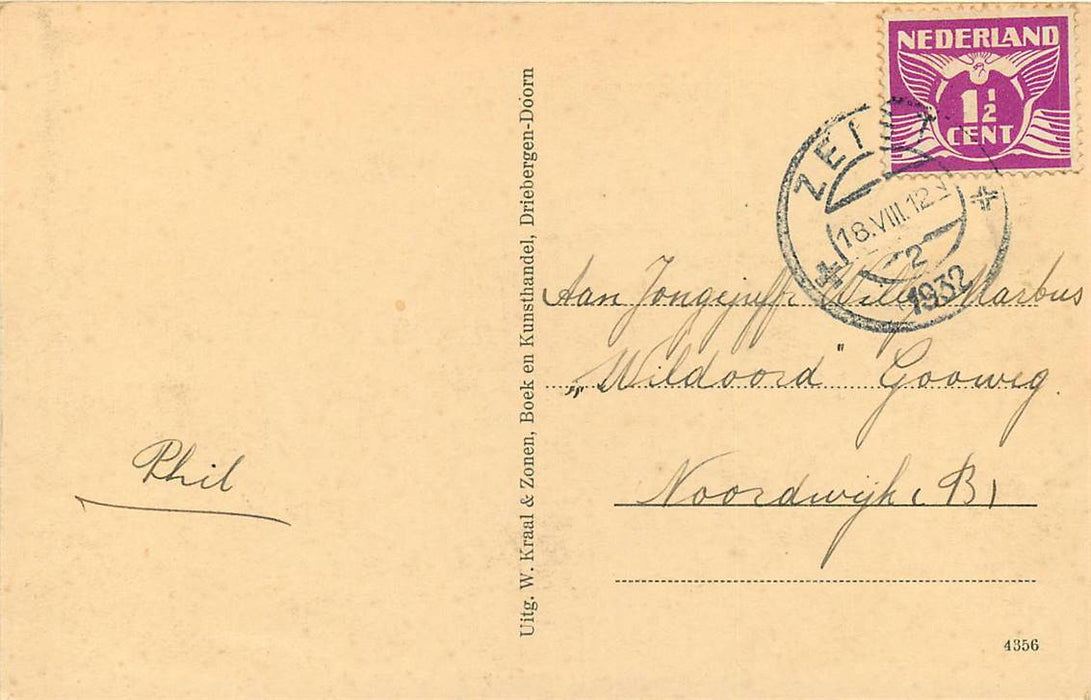 NEDERLAND
1½
CENT
ZEIST
18.VIII.12
2
1932
Aan Jongejuffr. Willy Marbus
„Wildoord" Gooweg
Noordwijk (B)
Phil
Uitg. W. Kraal & Zonen, Boek en Kunsthandel, Driebergen-Doorn
4356